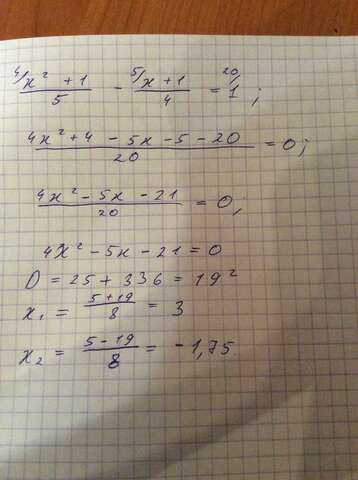 ⁴/ (x² + 1)/5 - ⁵/ (x + 1)/4 = ²⁰/ 1 ;
(4x² + 4 - 5x - 5 - 20)/20 = 0;
(4x² - 5x - 21)/20 = 0;
4x² - 5x - 21 = 0
D = 25 + 336 = 19²
x₁ = (5 + 19)/8 = 3
x₂ = (5 - 19)/8 = -1,75